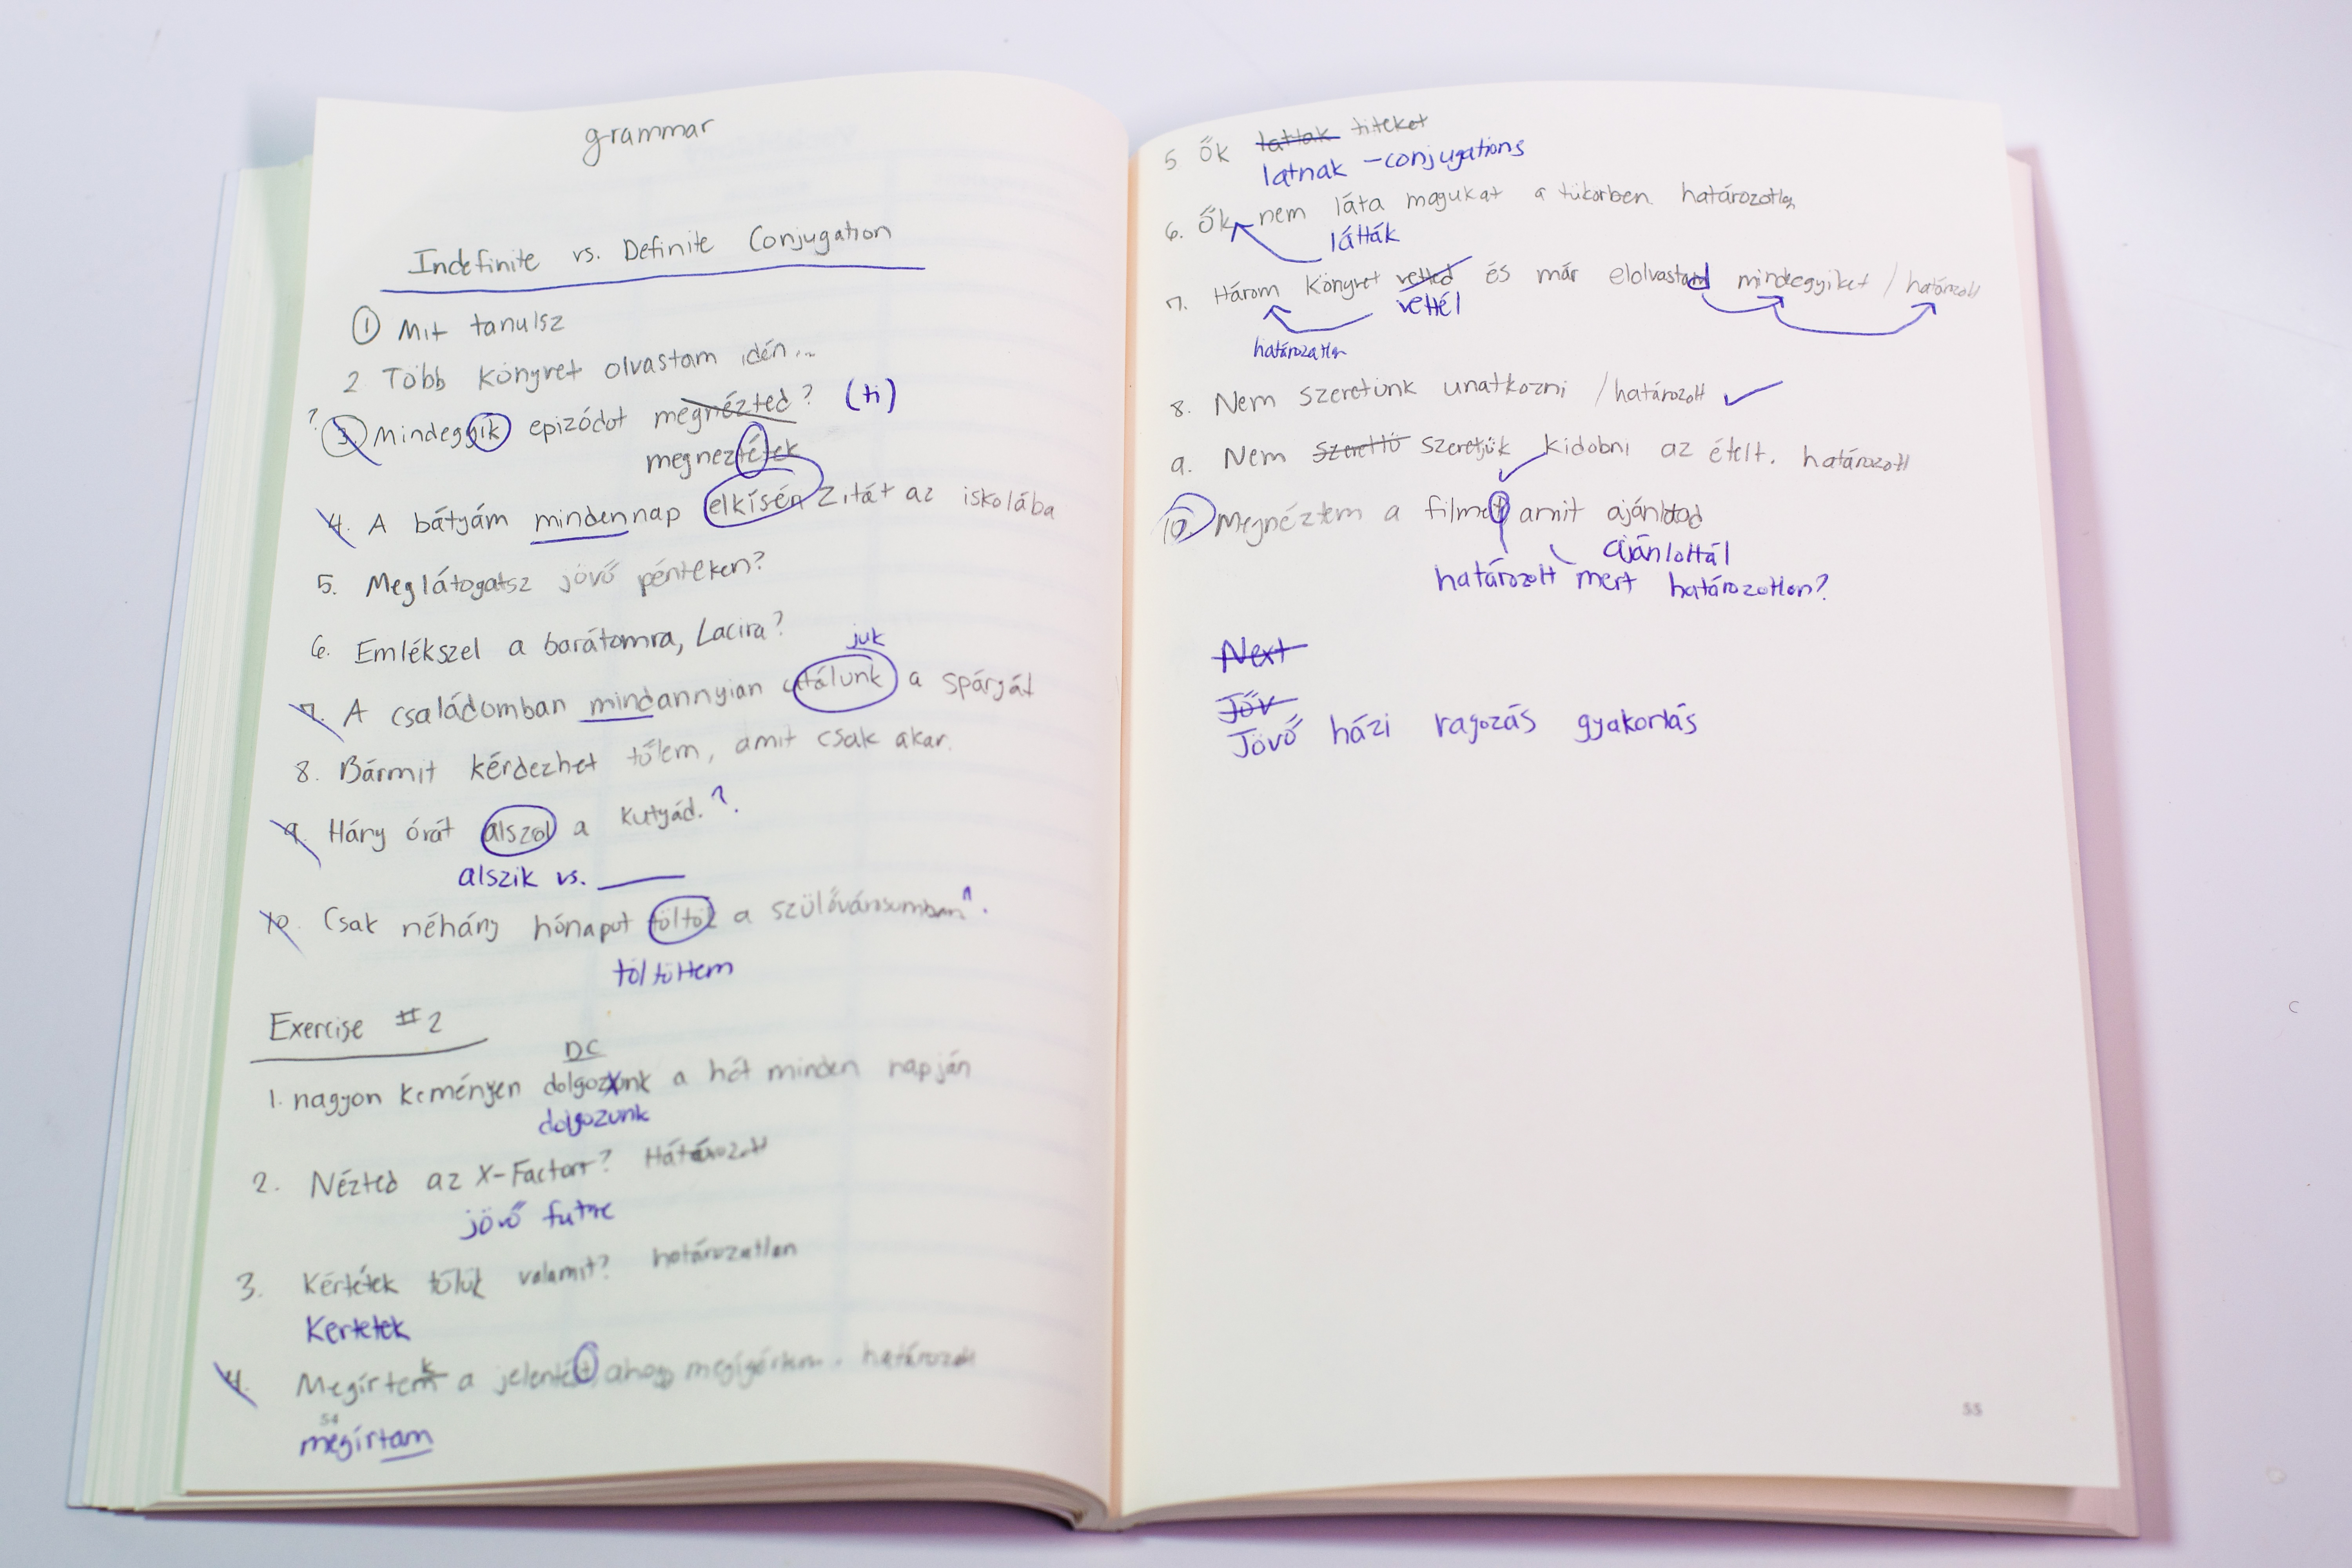 grammar
Indefinite vs. Definite Conjugation
1 Mit tanulsz
2 Több könyvet olvastam idén...
? 3 Mindegyik epizódot megnézted? (ti)
megneztétek
4. A bátyám mindennap elkísén Zitát az iskolába
5. Meglátogatsz jövő pénteken?
6. Emlékszel a barátomra, Lacira?
juk
7. A családomban mindannyian utálunk a spárgát
8. Bármit kérdezhet tőlem, amit csak akar.
9. Hány órát alszol a kutyád.?.
alszik vs. ___
10. Csak néhány hónapot töltöl a szülővárosumban n.
töltöttem
Exercise #2
DC
1. nagyon keményen dolgozunk a hét minden napján
dolgozunk
2. Nézted az X-Factort? Határozott
jövő future
3. Kértétek tőlük valamit? határozatlan
Kertetek
k
4. Megírtem a jelentést, ahogy megígértem. határozott
54
megírtam
5 Ők lattak titeket
latnak - conjugations
6. Ők nem láta magukat a tükörben határozotlen
látták
7. Három könyvet vetted és már elolvastad mindegyiket / határozott
vettél
határozatlen
8. Nem szeretünk unatkozni / határozott ✓
9. Nem szerettü szeretjük kidobni az ételt. határozott
10 Megnéztem a filmet amit ajánlotad
ajánlottál
határozott mert határozotlen?
Next
Jőv
Jövő házi ragozás gyakorlás
55